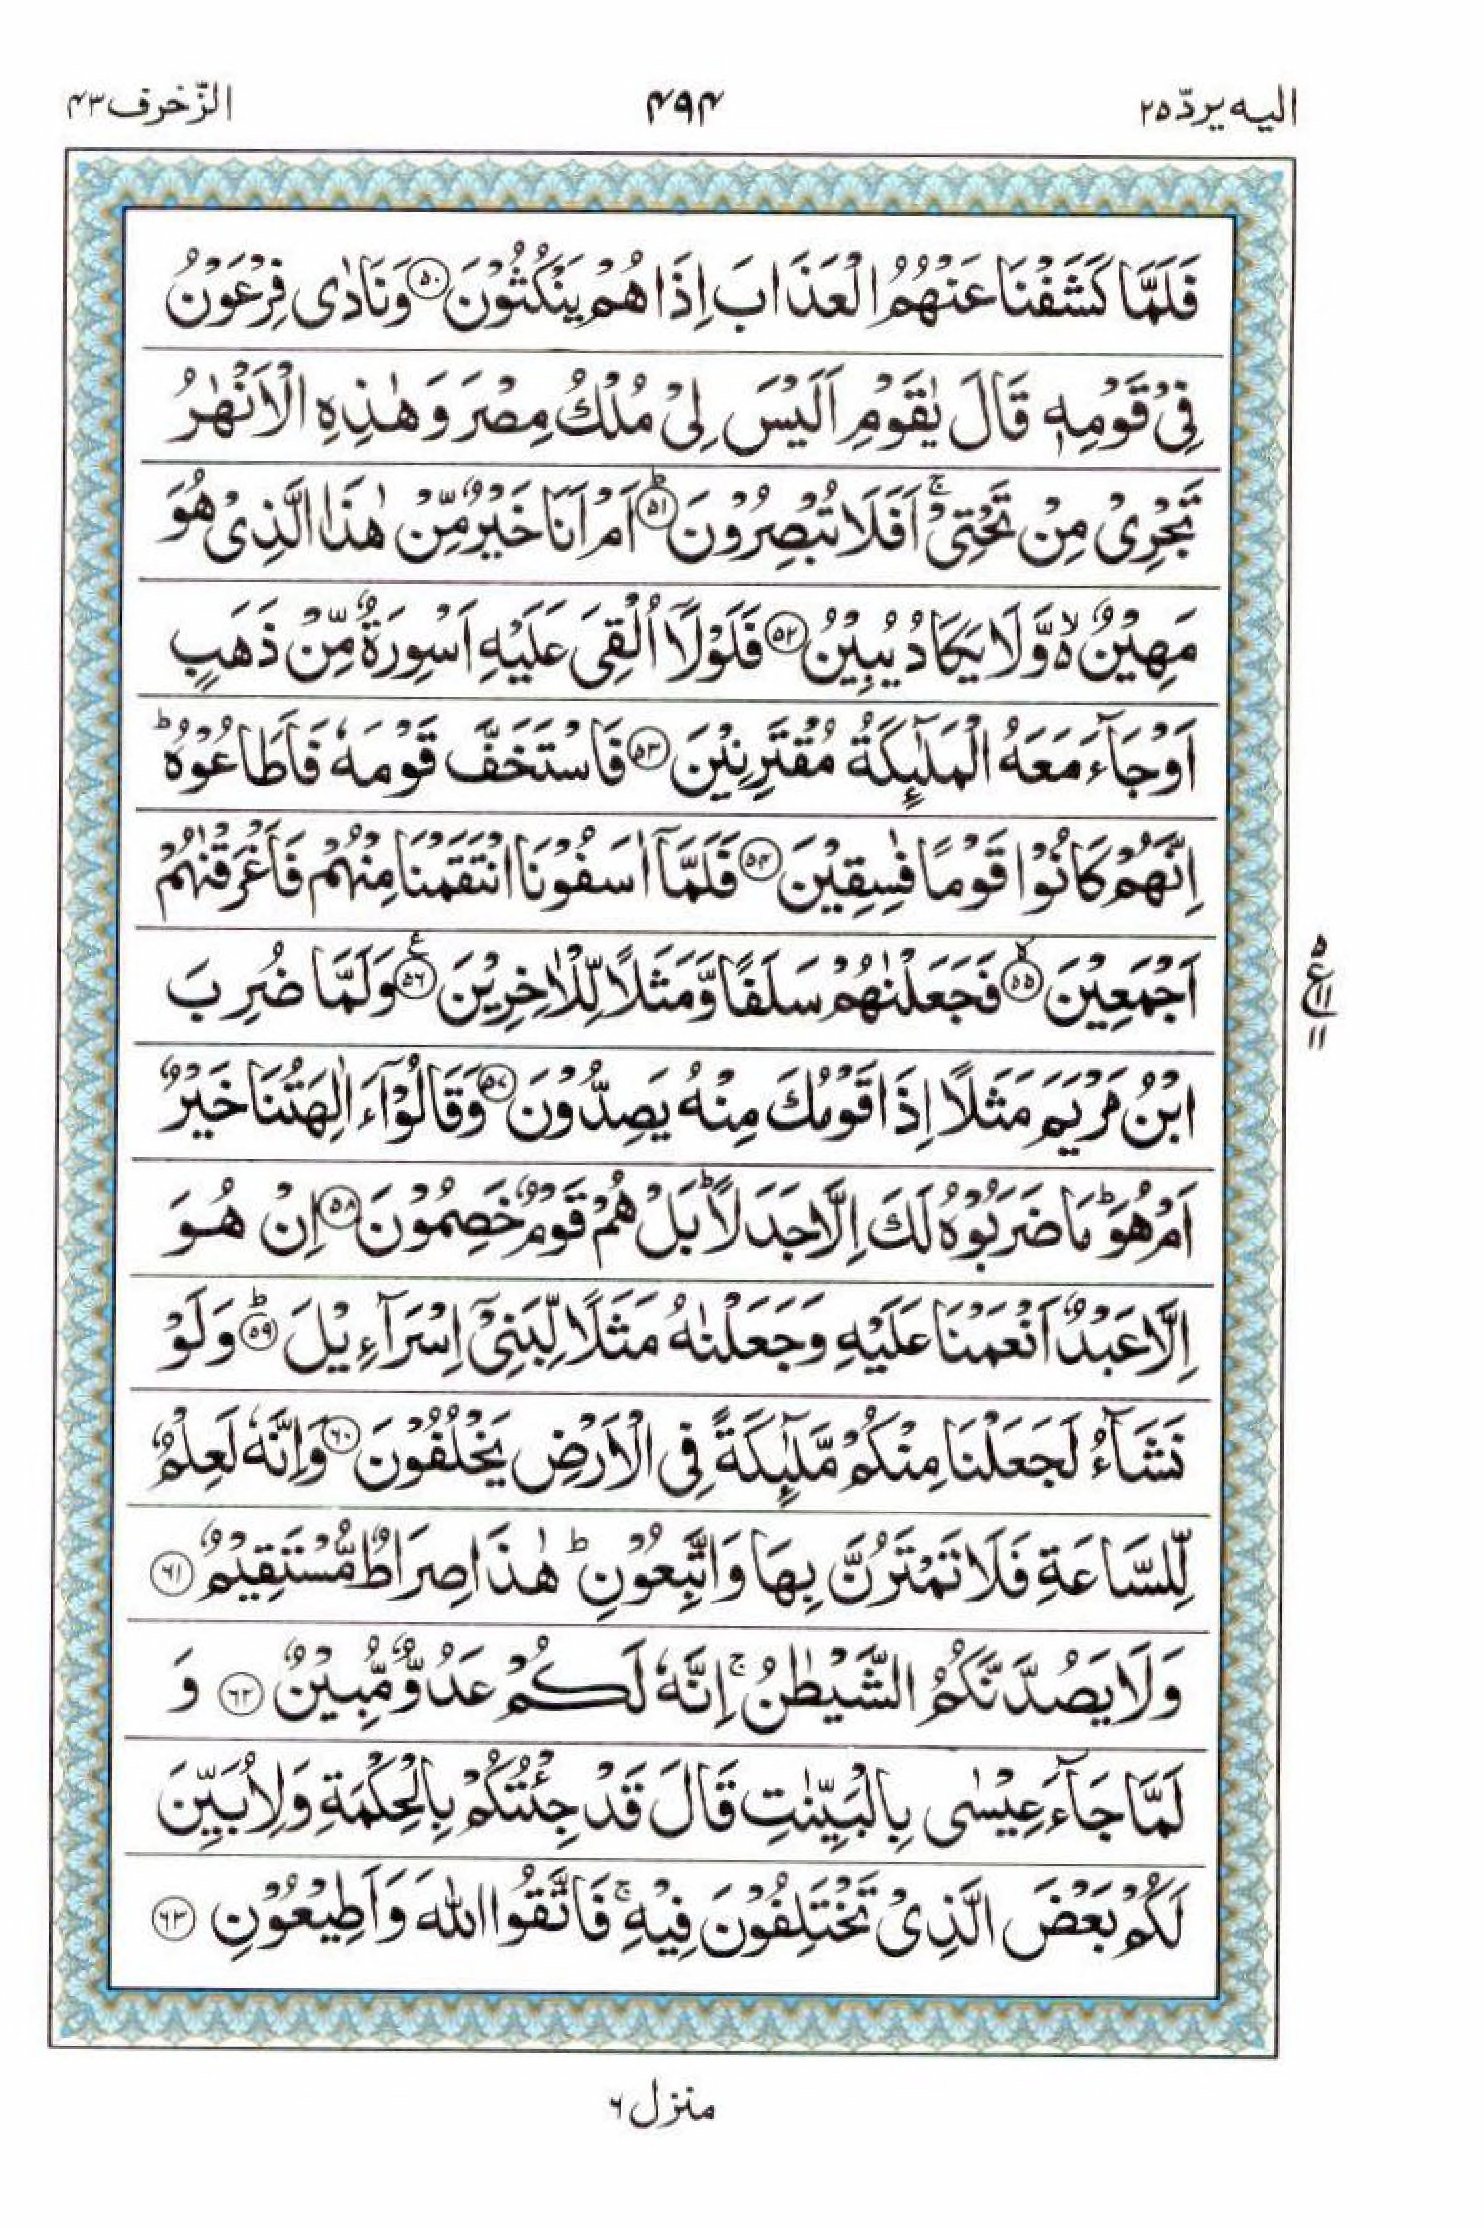 الزّخرف ۴۳
۴۹۴
الیه یردّ ۲۵
فَلَمَّا كَشَفْنَا عَنْهُمُ الْعَذَابَ اِذَا هُمْ يَنْكُثُوْنَ ۝۵۰ وَنَادٰى فِرْعَوْنُ
فِيْ قَوْمِهٖ قَالَ يٰقَوْمِ اَلَيْسَ لِيْ مُلْكُ مِصْرَ وَهٰذِهِ الْاَنْهٰرُ
تَجْرِيْ مِنْ تَحْتِيْ ۚ اَفَلَا تُبْصِرُوْنَ ۝۵۱ؕ اَمْ اَنَا خَيْرٌ مِّنْ هٰذَا الَّذِيْ هُوَ
مَهِيْنٌ ۙ۬ وَّلَا يَكَادُ يُبِيْنُ ۝۵۲ فَلَوْلَاۤ اُلْقِيَ عَلَيْهِ اَسْوِرَةٌ مِّنْ ذَهَبٍ
اَوْ جَآءَ مَعَهُ الْمَلٰٓىِٕكَةُ مُقْتَرِنِيْنَ ۝۵۳ فَاسْتَخَفَّ قَوْمَهٗ فَاَطَاعُوْهُ ؕ
اِنَّهُمْ كَانُوْا قَوْمًا فٰسِقِيْنَ ۝۵۴ فَلَمَّاۤ اٰسَفُوْنَا انْتَقَمْنَا مِنْهُمْ فَاَغْرَقْنٰهُمْ
اَجْمَعِيْنَ ۝۵۵ۙ فَجَعَلْنٰهُمْ سَلَفًا وَّمَثَلًا لِّلْاٰخِرِيْنَ ۝۵۶ع وَلَمَّا ضُرِبَ
ابْنُ مَرْيَمَ مَثَلًا اِذَا قَوْمُكَ مِنْهُ يَصِدُّوْنَ ۝۵۷ وَقَالُوْۤا ءَاٰلِهَتُنَا خَيْرٌ
اَمْ هُوَ ؕ مَا ضَرَبُوْهُ لَكَ اِلَّا جَدَلًا ؕ بَلْ هُمْ قَوْمٌ خَصِمُوْنَ ۝۵۸ اِنْ هُوَ
اِلَّا عَبْدٌ اَنْعَمْنَا عَلَيْهِ وَجَعَلْنٰهُ مَثَلًا لِّبَنِيْۤ اِسْرَآءِيْلَ ۝۵۹ؕ وَلَوْ
نَشَآءُ لَجَعَلْنَا مِنْكُمْ مَّلٰٓىِٕكَةً فِي الْاَرْضِ يَخْلُفُوْنَ ۝۶۰ وَاِنَّهٗ لَعِلْمٌ
لِّلسَّاعَةِ فَلَا تَمْتَرُنَّ بِهَا وَاتَّبِعُوْنِ ؕ هٰذَا صِرَاطٌ مُّسْتَقِيْمٌ ۝۶۱
وَلَا يَصُدَّنَّكُمُ الشَّيْطٰنُ ۚ اِنَّهٗ لَكُمْ عَدُوٌّ مُّبِيْنٌ ۝۶۲ وَ
لَمَّا جَآءَ عِيْسٰى بِالْبَيِّنٰتِ قَالَ قَدْ جِئْتُكُمْ بِالْحِكْمَةِ وَلِاُبَيِّنَ
لَكُمْ بَعْضَ الَّذِيْ تَخْتَلِفُوْنَ فِيْهِ ۚ فَاتَّقُوا اللّٰهَ وَاَطِيْعُوْنِ ۝۶۳
۵
ع ۱۱
۱۱
منزل ۶